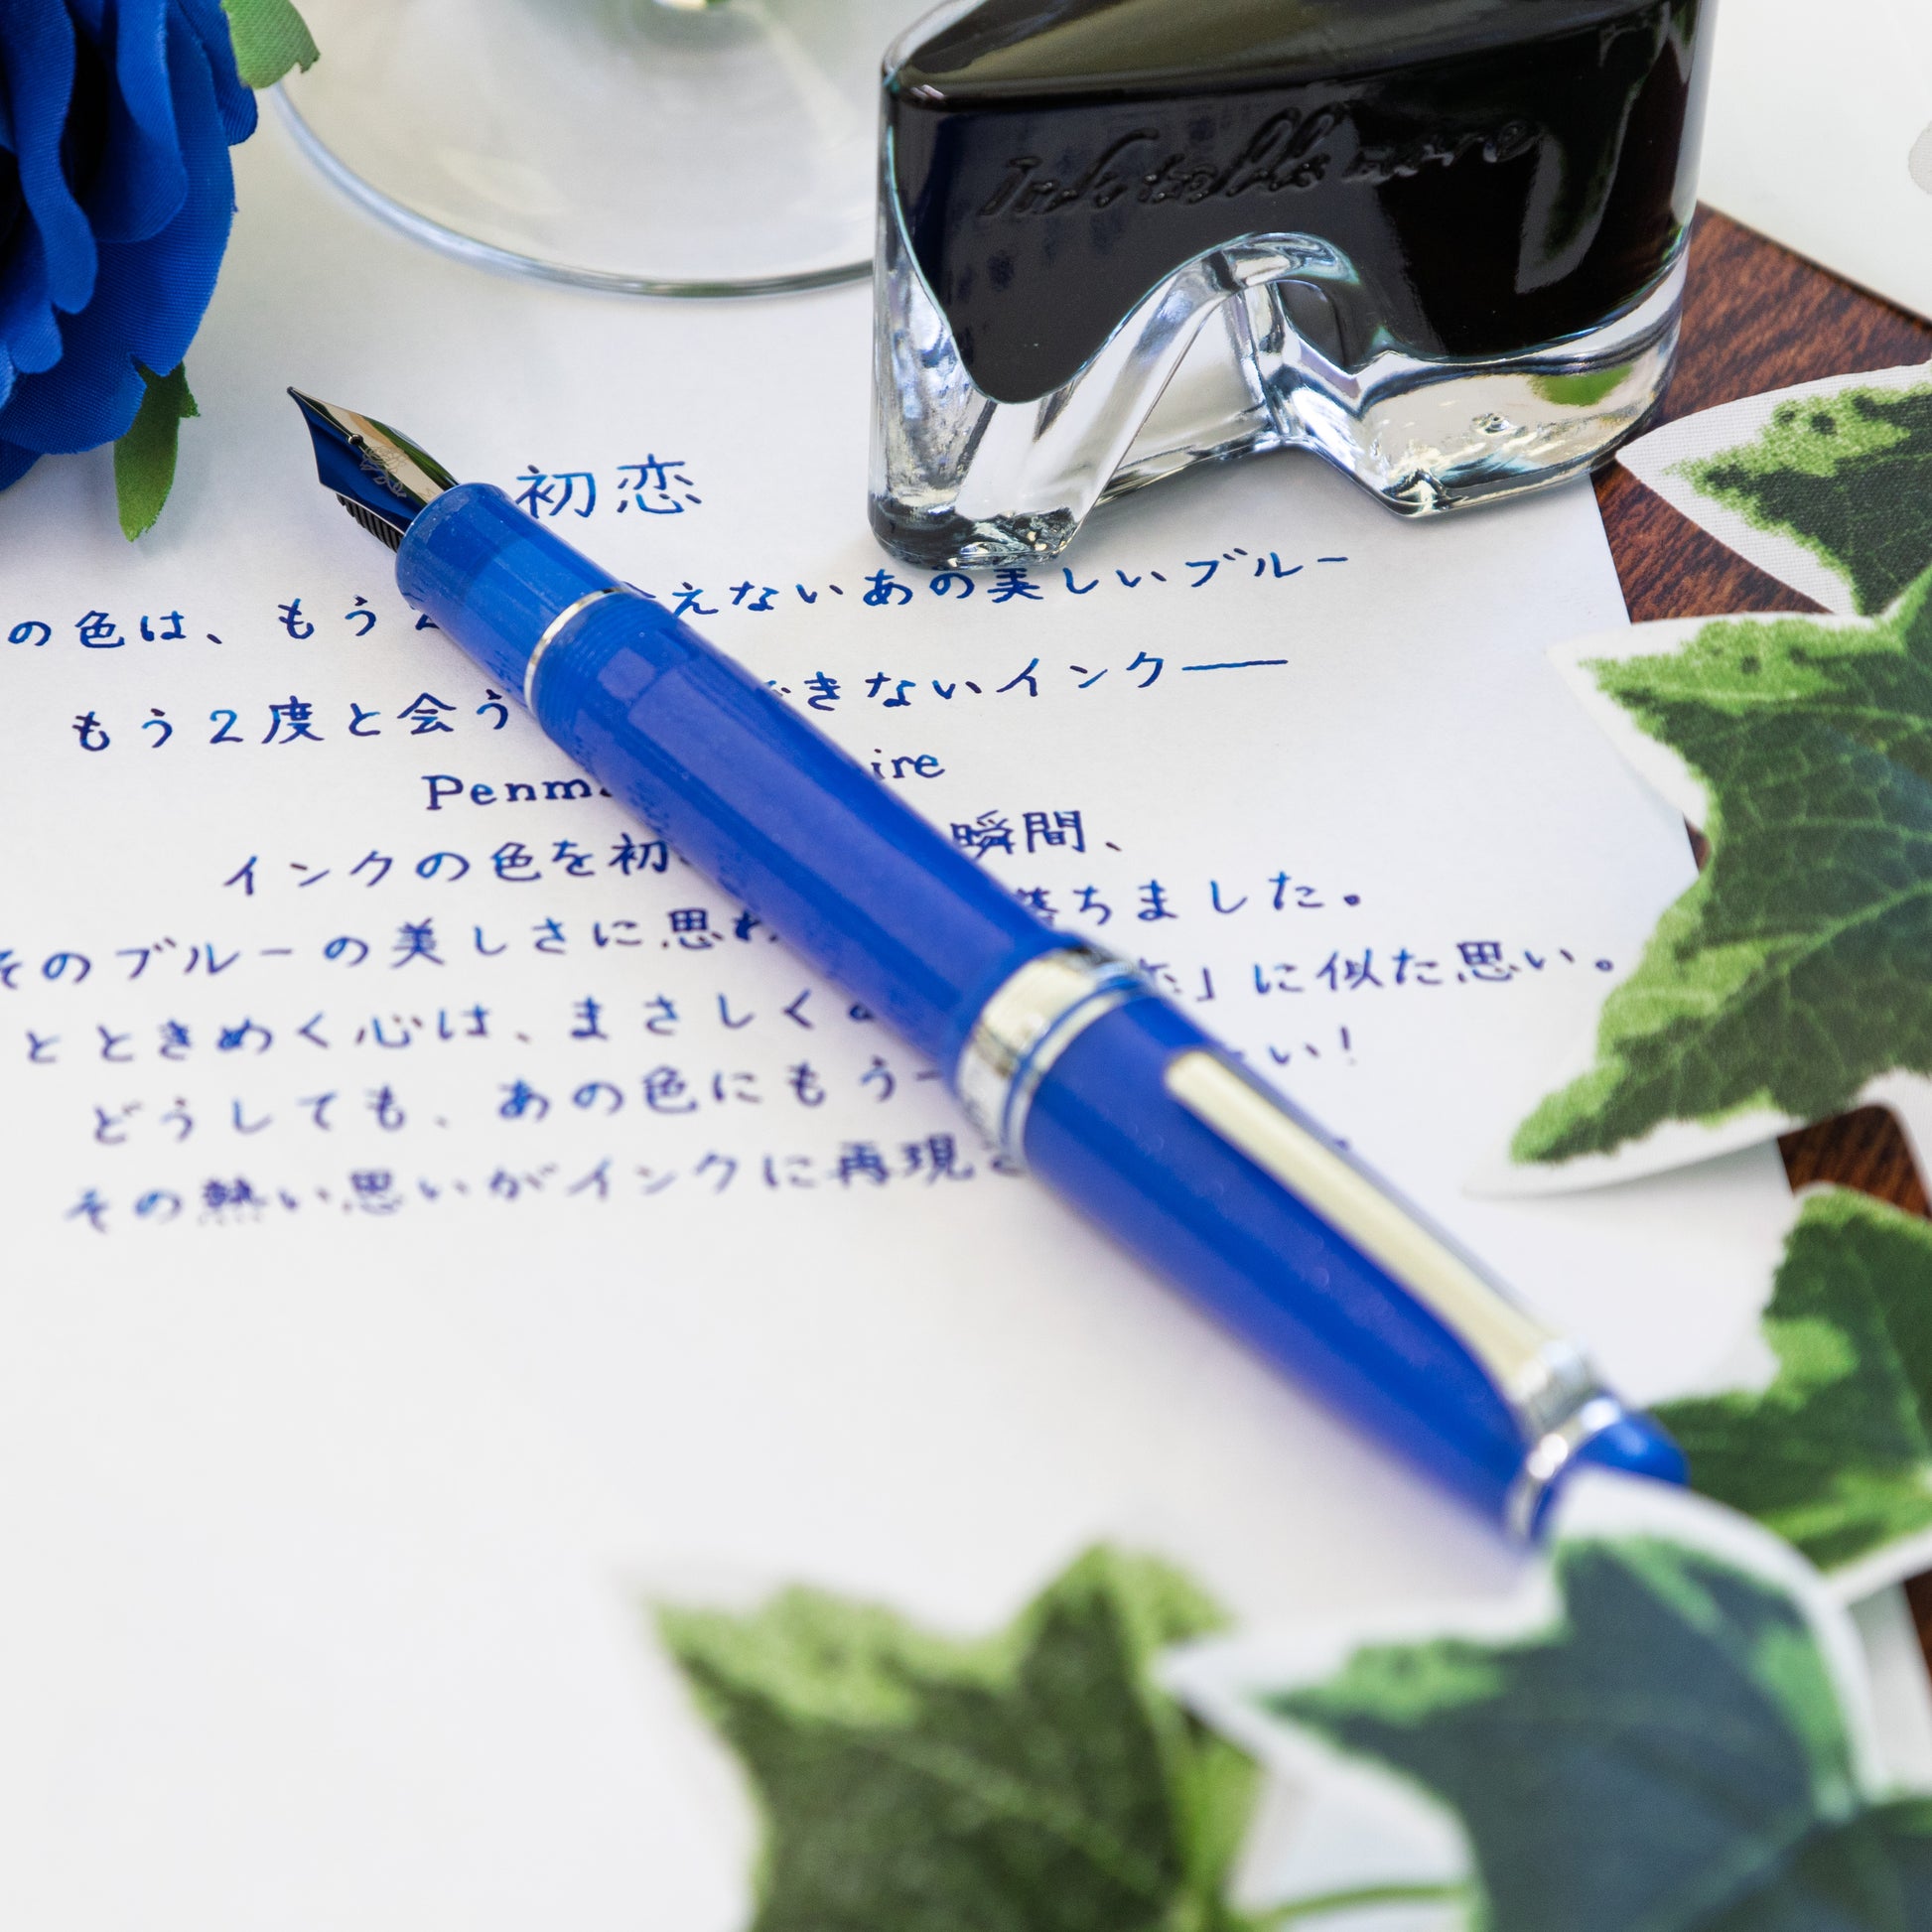 Ink tells more
初恋
の色は、もう えないあの美しいブルー
もう2度と会う できないインク——
Penm ire
インクの色を初 瞬間、
そのブルーの美しさに思わ 落ちました。
とときめく心は、まさしく 恋」に似た思い。
どうしても、あの色にもう一 い!
その熱い思いがインクに再現さ